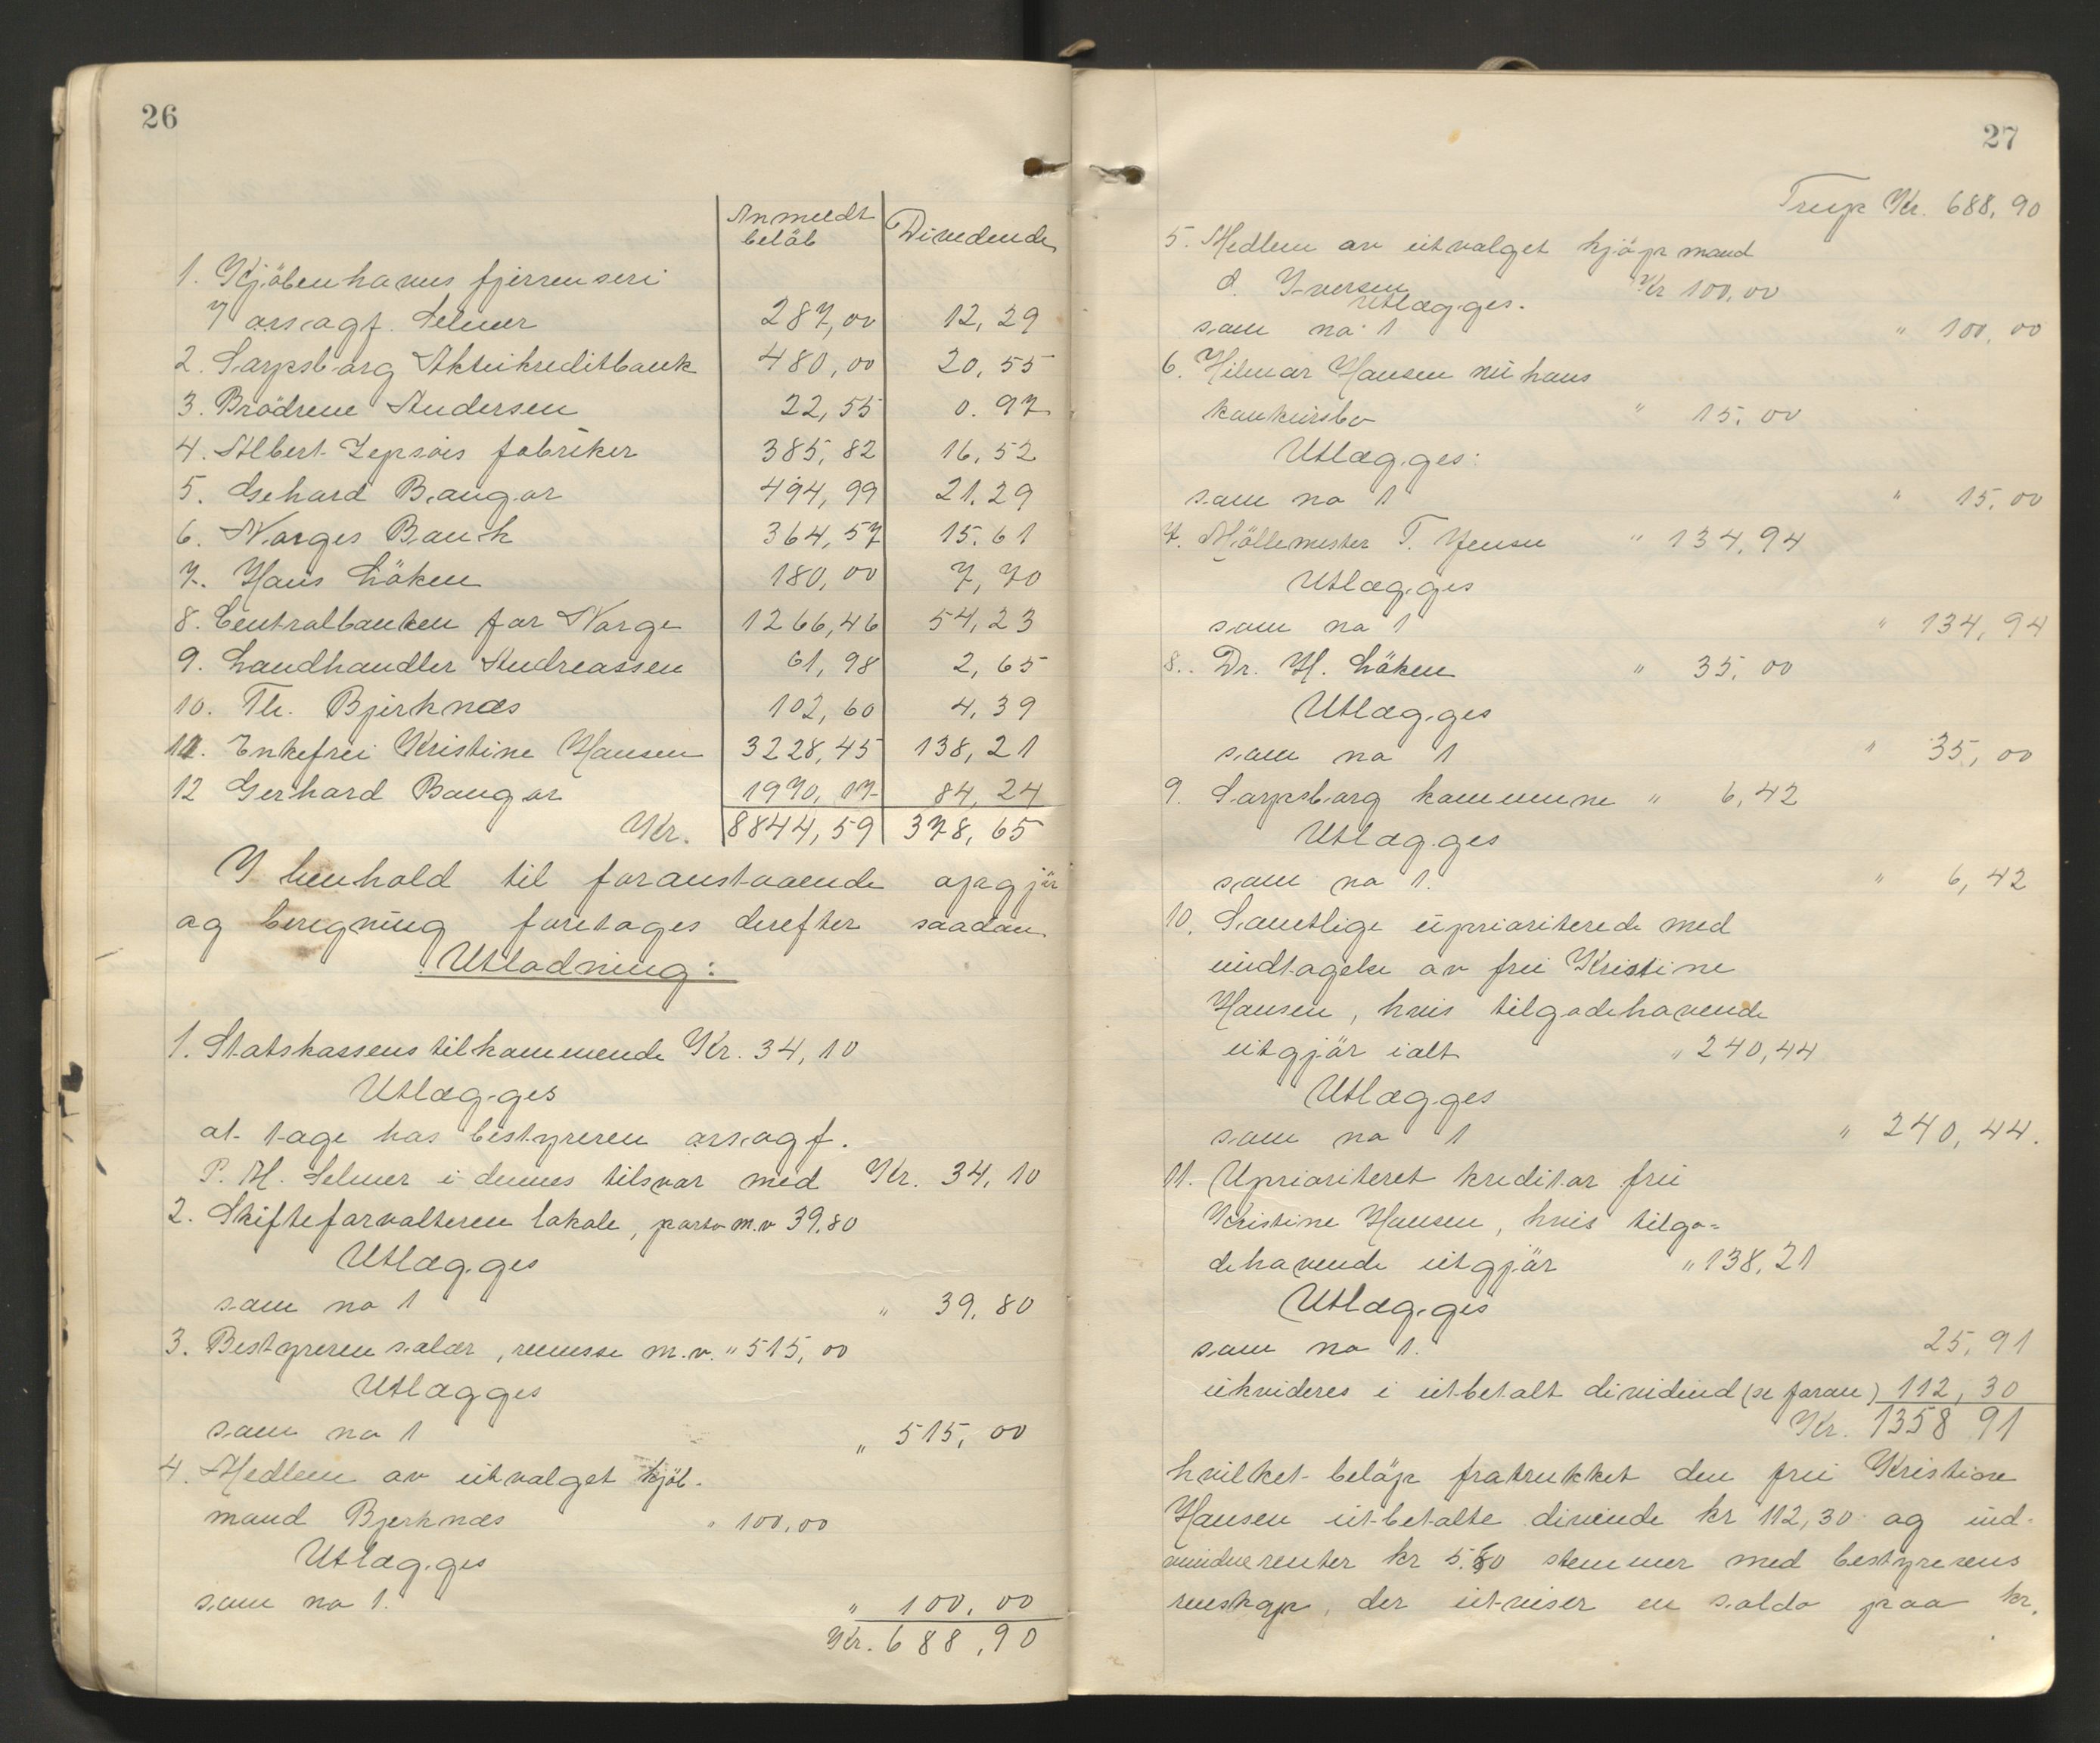 26
Anmeldt
beløb Dividende
1. Kjöbenhavns fjerrenseri
v/ o.r.s.agf. Selmer 287,00 12,29
2. Sarpsborg Aktiekreditbank 480,00 20,55
3. Brödrene Andersen 22,55 0.97
4. Albert Jepsois fabriker 385,82 16,52
5. Gehard Baugor 494,99 21.29
6. Norges Bank 364,57 15.61
7. Hans Löken 180,00 7,70
8. Centralbanken for Norge 1266,46 54,23
9. Landhandler Andreassen 61,98 2,65
10. Th. Bjerknæs 102,60 4,39
11. Enkefru Kristine Hansen 3228,45 138,21
12 Gerhard Baugor 1970,17 84,24
Kr. 8844,59 378,65
I henhold til foranstaaende opgjör
og beregning foretages derefter saadan
Utlodning:
1. Statskassens tilkommende Kr. 34,10
Utlægges
at tage hos bestyreren o.r.sagf.
P. H. Selmer i dennes tilsvar med Kr. 34,10
2. Skifteforvalteren lokale, porto m.v 39.80
Utlægges
som no 1 " 39.80
3. Bestyreren salær, reruesse m.v. " 515,00
Utlægges
som no 1 " 515,00
4. Medlem av utvalget kjöb-
mand Bjerknæs " 100,00
Utlægges
som no 1. " 100.00
Kr. 688,90
27
Trup Kr. 688,90
5. Medlem av utvalget kjöpmand
O. Iversen Kr 100,00
Utlægges.
som no 1 " 100,00
6. Hilmar Hansen nu hans
konkursbo " 15,00
Utlægges:
som no 1 " 15,00
7. Möllemester T. Jensen " 134,94
Utlægges
som no 1 " 134,94
8. Dr. H. Löken " 35,00
Utlægges
som no 1 " 35,00
9. Sarpsborg kommune " 6,42
Utlægges
som no 1. " 6,42
10. Samtlige upriariterede med
undtagelse av fru Kristine
Hansen, hvis tilgodehavende
utgjör ialt " 240,44
Utlægges
som no 1 " 240,44.
11. Uprioriteret kreditor fru
Kristine Hansen, hvis tilgo=
dehavende utgjör " 138,21
Utlægges
som no 1. 25,91
likvideres i utbetalt dividend (se foran) 112,30
Kr. 1358 91
hvilket beløp fratrukket den fru Kristine
Hansen utbetalte divende kr 112,30 og ind-
vundne renter kr 5.60 stemmer med bestyrerens
renskap, der utviser en saldo paa kr.